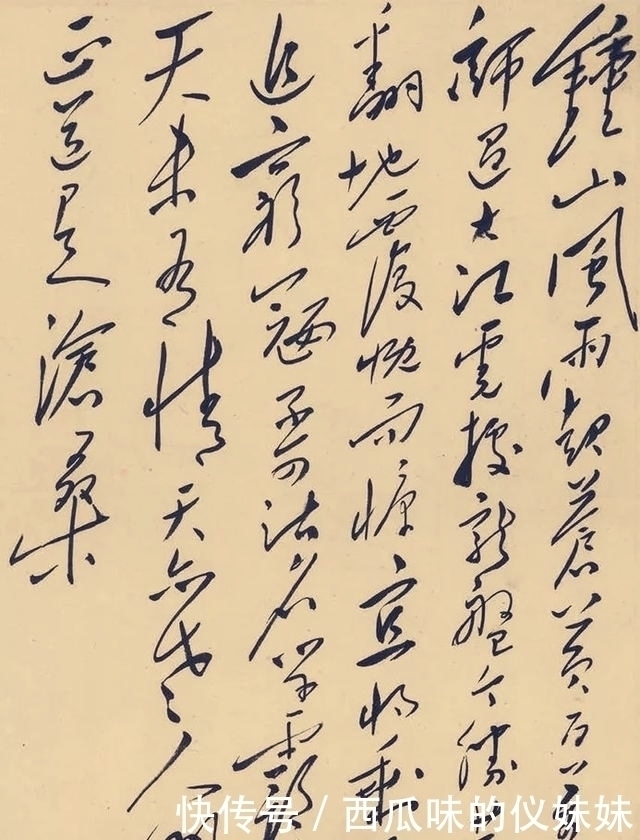 鍾山風雨起蒼黃百萬
師過大江虎據龍盤今勝
翻地覆慨而慷宜將剩
追窮寇不可沽名學霸
天若有情天亦老人間
正道是滄桑
快传号 / 西瓜味的仪妹妹